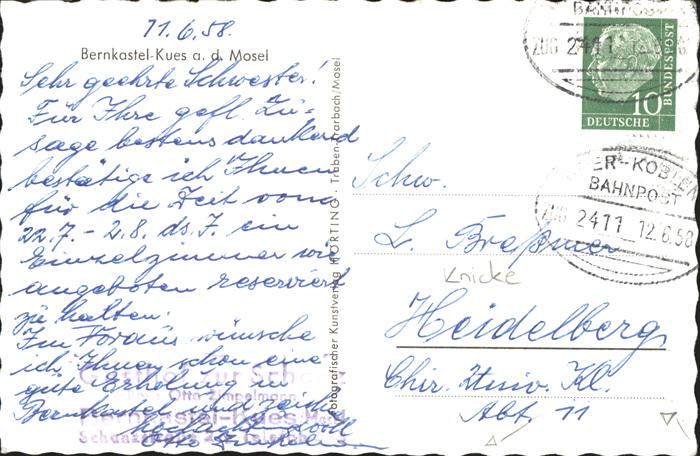 11.6.58.
Bernkastel-Kues a. d. Mosel
Sehr geehrte Schwester!
Für Ihre gefl. Zu-
sage bestens dankend
bestätige ich Ihnen
für die Zeit vom
22.7. - 2.8. ds. J. ein
Einzelzimmer wie
angeboten reserviert
zu halten.
Im Voraus wünsche
ich Ihnen schon eine
gute Erholung in
Bernkastel und
Otto
Otto Zimpelmann
Bernkastel-Kues
Fotografischer Kunstverlag HÖRTING Traben-Trarbach/Mosel
BAHNPOST
ZUG 2411 12.6.58
10
DEUTSCHE
BUNDESPOST
BAHNPOST
ZUG 2411 12.6.58
Schw.
L. Braßmer
Knicke
Heidelberg
Chir. Univ. Kl.
Abt. 11